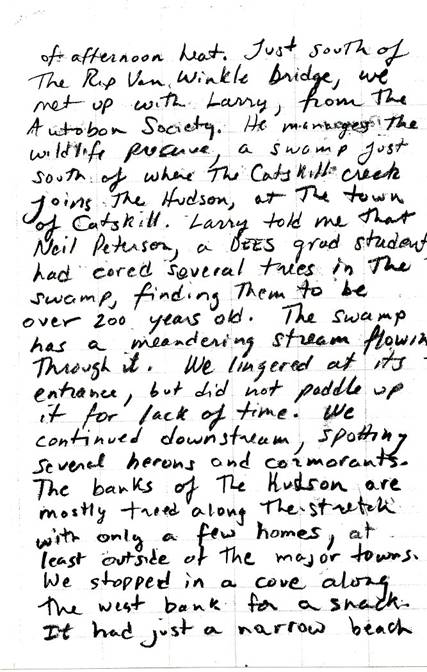 of afternoon heat. Just south of
The Rip Van Winkle Bridge, we
met up with Larry, from The
Autobon Society. He manages The
wildlife preserve, a swamp just
south of where The Catskill creek
joins The Hudson, at The town
of Catskill. Larry told me That
Neil Peterson, a DEES grad student
had cored several trees in The
swamp, finding Them to be
over 200 years old. The swamp
has a meandering stream flowin
Through it. We lingered at its
entrance, but did not paddle up
it for lack of time. We
continued downstream, spotting
several herons and cormorants.
The banks of The Hudson are
mostly treed along The stretch
with only a few homes, at
least outside of The major towns.
We stopped in a cove along
The west bank for a snack.
It had just a narrow beach